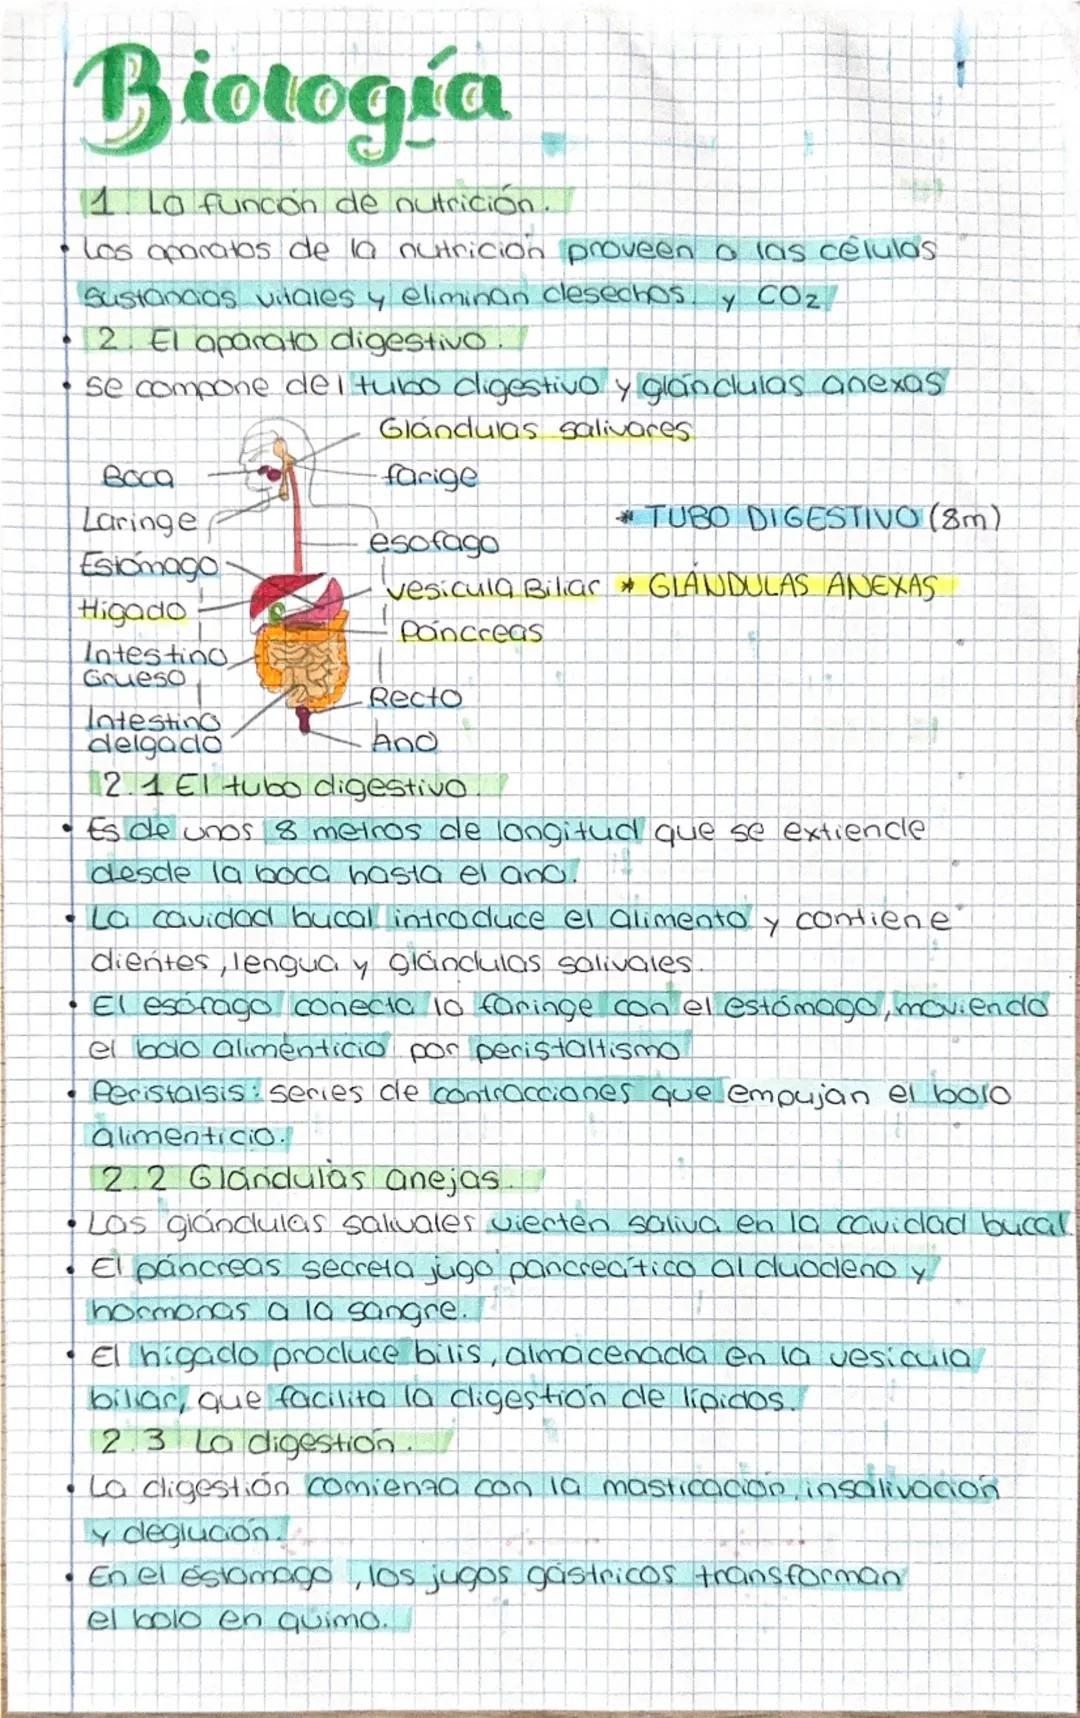 Biología
1. La función de nutrición.
• Los aparatos de la nutrición proveen a las células
sustancias vitales y eliminan desechos y CO2
• 2. El aparato digestivo.
• se compone del tubo digestivo y glándulas anexas
Glándulas salivares
Boca
farige
Laringe
* TUBO DIGESTIVO (8m)
esofago
Estómago
vesicula Biliar
* GLÁNDULAS ANEXAS
Higado
Páncreas
Intestino
Grueso
Recto
Intestino
delgado
Ano
2.1 El tubo digestivo.
• Es de unos 8 metros de longitud que se extiende
desde la boca hasta el ano.
• La cavidad bucal introduce el alimento y contiene
dientes, lengua y glándulas salivales.
• El esófago conecta la faringe con el estómago, moviendo
el bolo alimenticio por peristaltismo
• Peristalsis: series de contracciones que empujan el bolo
alimenticio.
2.2 Glándulas anejas.
• Las glándulas salivales vierten saliva en la cavidad bucal
• El páncreas secreta jugo pancreático al duodeno y
hormonas a la sangre.
• El hígado produce bilis, almacenada en la vesícula
biliar, que facilita la digestión de lípidos.
2.3 La digestión.
• La digestión comienza con la masticación, insalivación
y deglución.
• En el estómago, los jugos gástricos transforman
el bolo en quimo.